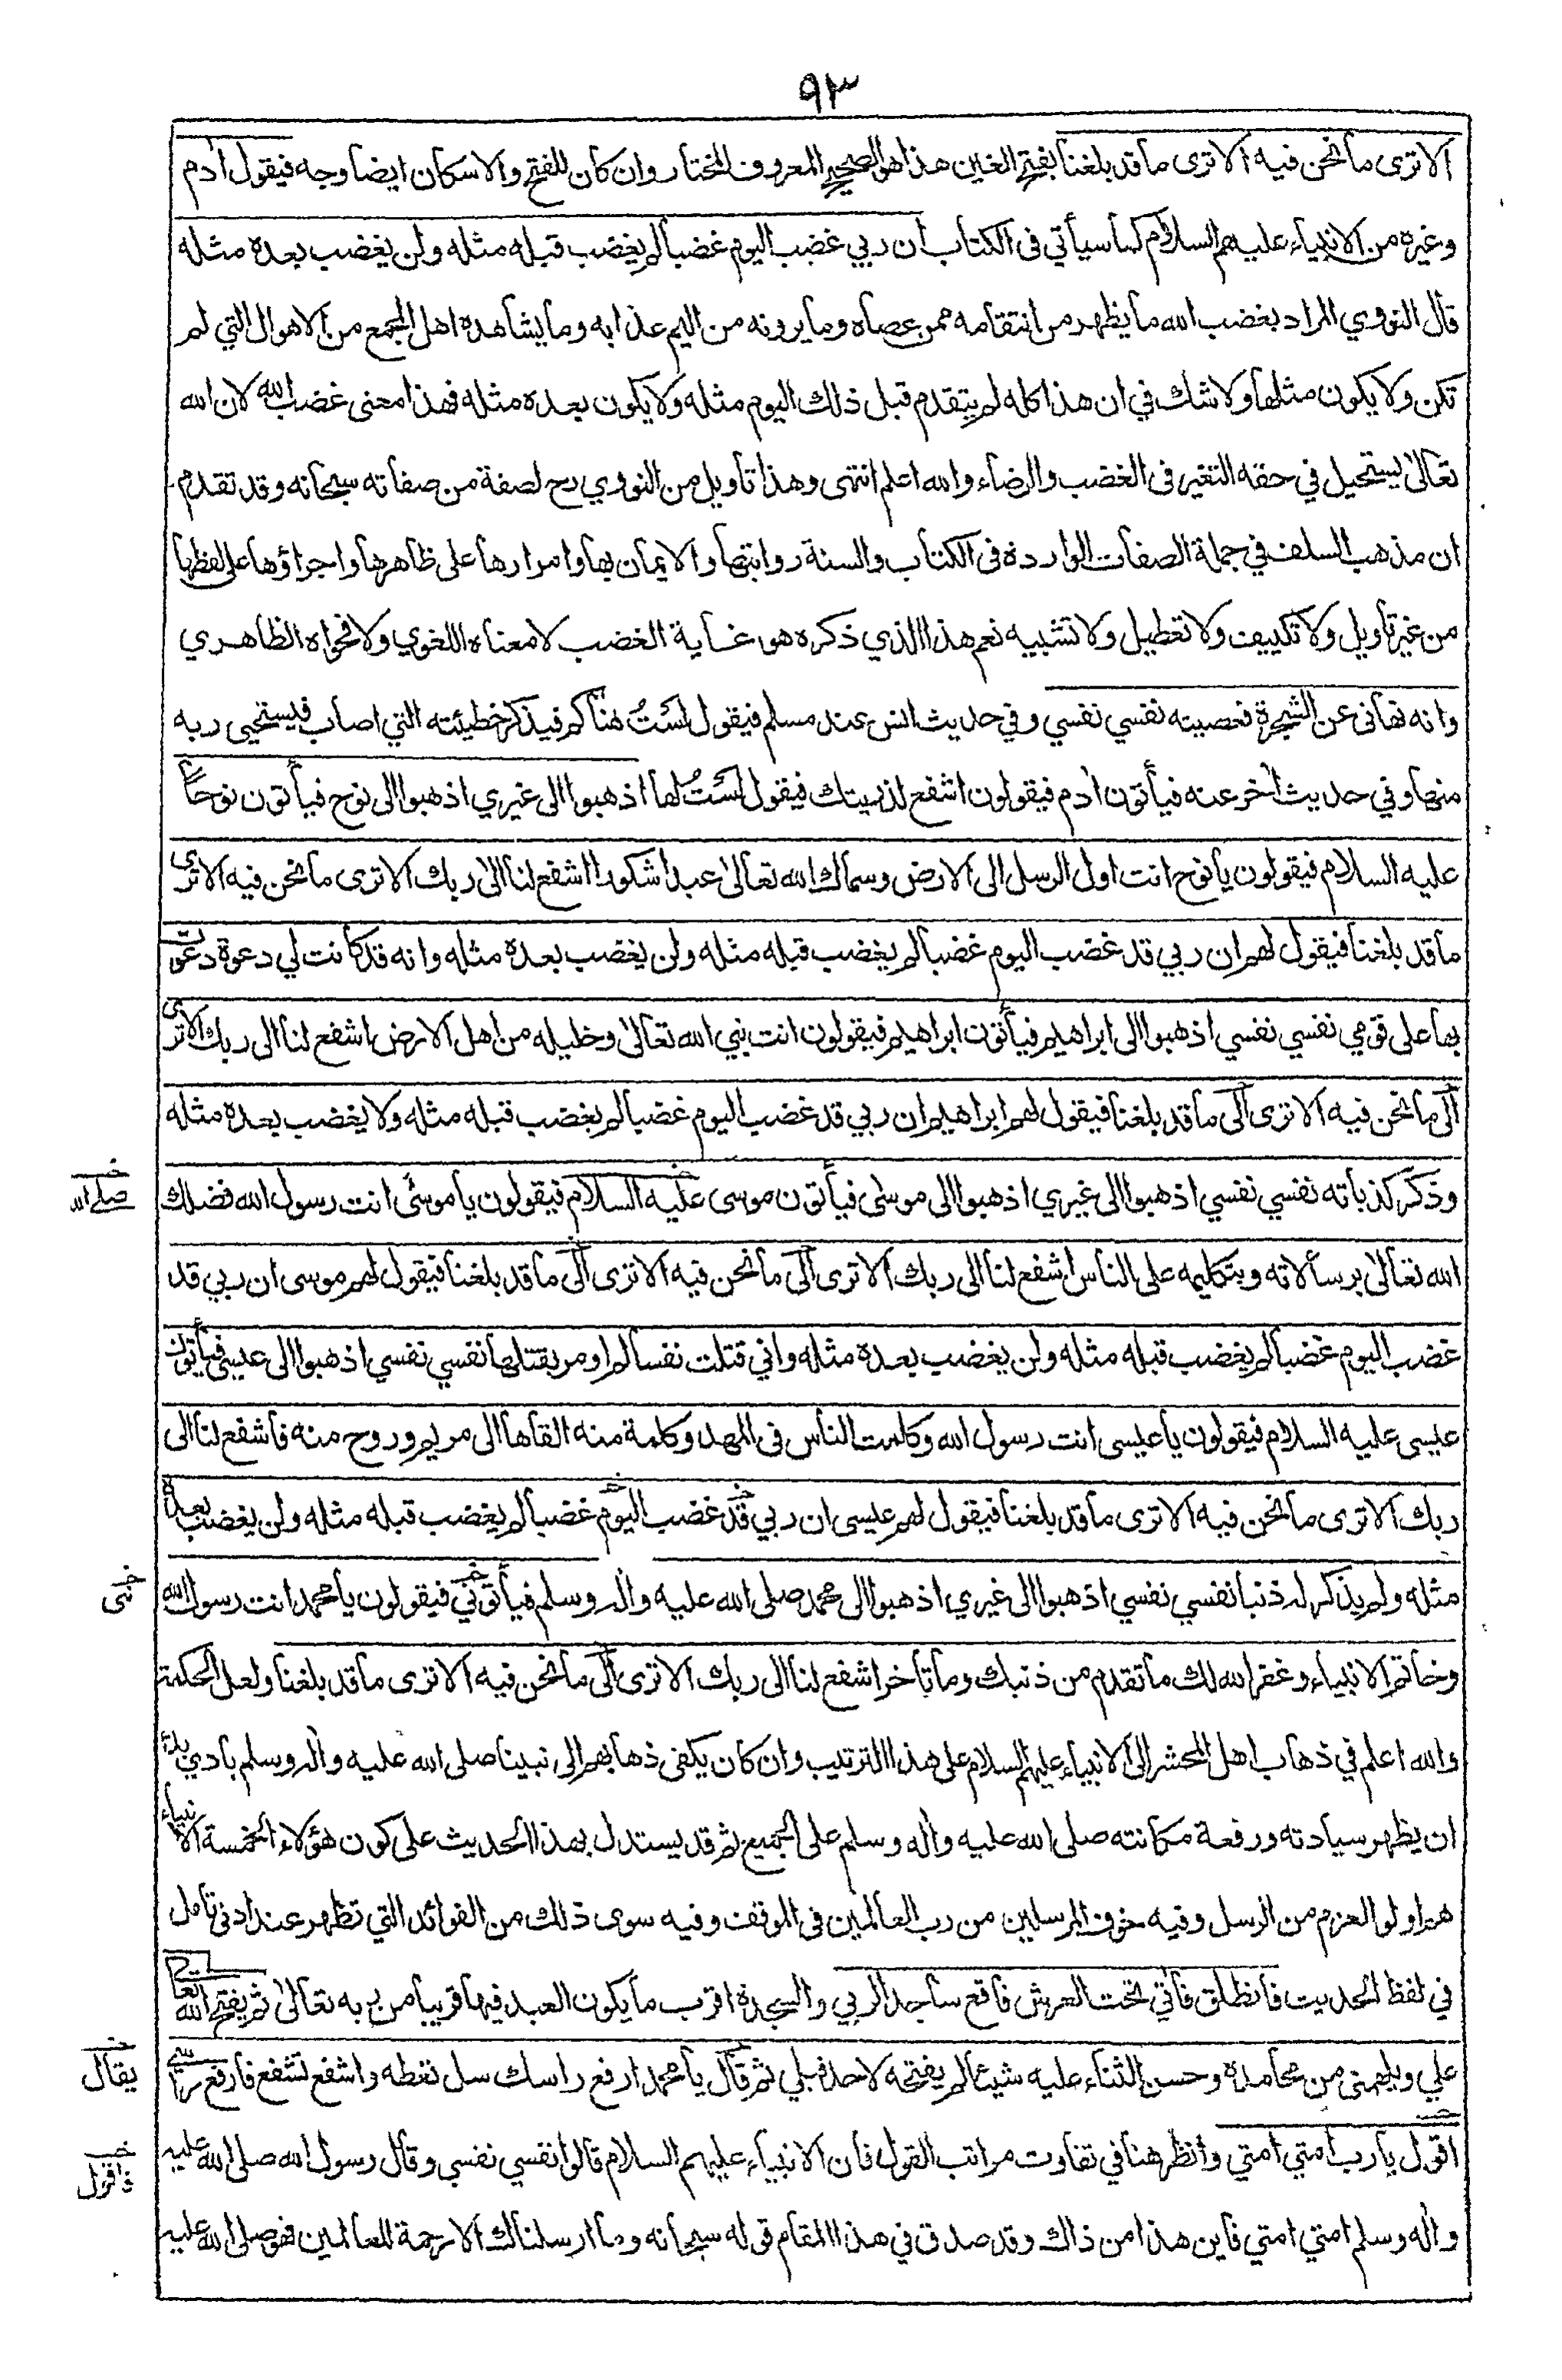 ٩٣
الا ترى ما نحن فيه الا ترى ما قد بلغنا بفتح الغين هذا هو الصحيح المعروف المختار وان كان للفتح والاسكان ايضا وجه فيقول ادم
وغيره من الانبياء عليهم السلام كما سيأتي فى الكتاب ان ربي غضب اليوم غضبا لم يغضب قبله مثله ولن يغضب بعده مثله
قال النووي المراد بغضب الله ما يظهر من انتقامه ممن عصاه وما يرونه من اليم عذابه وما يشاهده اهل المجمع من الاهوال التي لم
تكن ولا يكون مثلها ولا شك في ان هذا كله لم يتقدم قبل ذلك اليوم مثله ولا يكون بعده مثله فهذا معنى غضب الله لان الله
تعالى يستحيل في حقه التغير فى الغضب والرضاء والله اعلم انتهى وهذا تأويل من النووي رح لصفة من صفاته سبحانه وقد تقدم
ان مذهب السلف في جملة الصفات الواردة فى الكتاب والسنة روايتها والايمان بها وامرارها على ظاهرها واجراؤها على لفظها
من غير تأويل ولا تكييف ولا تعطيل ولا تشبيه نعم هذا الذي ذكره هو غاية الغضب لا معناه اللغوي ولا فحواه الظاهري
وانه نهانى عن الشجرة فعصيته نفسي نفسي وفي حديث انس عند مسلم فيقول لست هناكم فيذكر خطيئته التي اصاب فيستحيي ربه
منها وفي حديث اخر عنه فيأتون ادم فيقولون اشفع لذريتك فيقول لست لها اذهبوا الى غيري اذهبوا الى نوح فيأتون نوحا
عليه السلام فيقولون يا نوح انت اول الرسل الى الارض وسماك الله تعالى عبدا شكورا اشفع لنا الى ربك الا ترى ما نحن فيه الا ترى
ما قد بلغنا فيقول لهم ان ربي قد غضب اليوم غضبا لم يغضب قبله مثله ولن يغضب بعده مثله وانه قد كانت لي دعوة دعوت
بها على قومي نفسي نفسي اذهبوا الى ابراهيم فيأتون ابراهيم فيقولون انت نبي الله تعالى وخليله من اهل الارض اشفع لنا الى ربك الا ترى
الى ما نحن فيه الا ترى الى ما قد بلغنا فيقول لهم ابراهيم ان ربي قد غضب اليوم غضبا لم يغضب قبله مثله ولا يغضب بعده مثله
وذكر كذباته نفسي نفسي اذهبوا الى غيري اذهبوا الى موسى فيأتون موسى عليه السلام فيقولون يا موسى انت رسول الله فضلك
صلى الله
الله تعالى برسالاته وبتكليمه على الناس اشفع لنا الى ربك الا ترى الى ما نحن فيه الا ترى الى ما قد بلغنا فيقول لهم موسى ان ربي قد
غضب اليوم غضبا لم يغضب قبله مثله ولن يغضب بعده مثله واني قتلت نفسا لم اومر بقتلها نفسي نفسي اذهبوا الى عيسى فيأتون
عيسى عليه السلام فيقولون يا عيسى انت رسول الله وكلمت الناس فى المهد وكلمة منه القاها الى مريم وروح منه فاشفع لنا الى
ربك الا ترى ما نحن فيه الا ترى ما قد بلغنا فيقول لهم عيسى ان ربي قد غضب اليوم غضبا لم يغضب قبله مثله ولن يغضب بعده
مثله ولم يذكر له ذنبا نفسي نفسي اذهبوا الى غيري اذهبوا الى محمد صلى الله عليه واله وسلم فيأتوني فيقولون يا محمد انت رسول الله
وخاتم الانبياء وغفر الله لك ما تقدم من ذنبك وما تأخر اشفع لنا الى ربك الا ترى الى ما نحن فيه الا ترى ما قد بلغنا ولعل الحكمة
والله اعلم في ذهاب اهل المحشر الى الانبياء عليهم السلام على هذا الترتيب وان كان يكفى ذهابهم الى نبينا صلى الله عليه واله وسلم بادي بدء
ان يظهر سيادته ورفعة مكانته صلى الله عليه واله وسلم على الجميع ثم قد يستدل بهذا الحديث على كون هؤلاء الخمسة الانبياء
هم اولو العزم من الرسل وفيه خوف المرسلين من رب العالمين فى الموقف وفيه سوى ذلك من الفوائد التي تظهر عند ادنى تامل
في لفظ الحديث فانطلق فأتي تحت العرش فاقع ساجدا لربي والسجدة اقرب ما يكون العبد فيها قريبا من ربه تعالى ثم يفتح الله تعالى
علي ويلهمني من محامده وحسن الثناء عليه شيئا لم يفتحه لاحد قبلي ثم قال يا محمد ارفع راسك سل تعطه واشفع تشفع فارفع راسي
يقال
اقول يا رب امتي امتي وانظر هنا في تفاوت مراتب القول فان الانبياء عليهم السلام قالوا نفسي نفسي وقال رسول الله صلى الله عليه
فاقول
واله وسلم امتي امتي فاين هذا من ذاك وقد صدق في هذا المقام قوله سبحانه وما ارسلناك الا رحمة للعالمين فهو صلى الله عليه